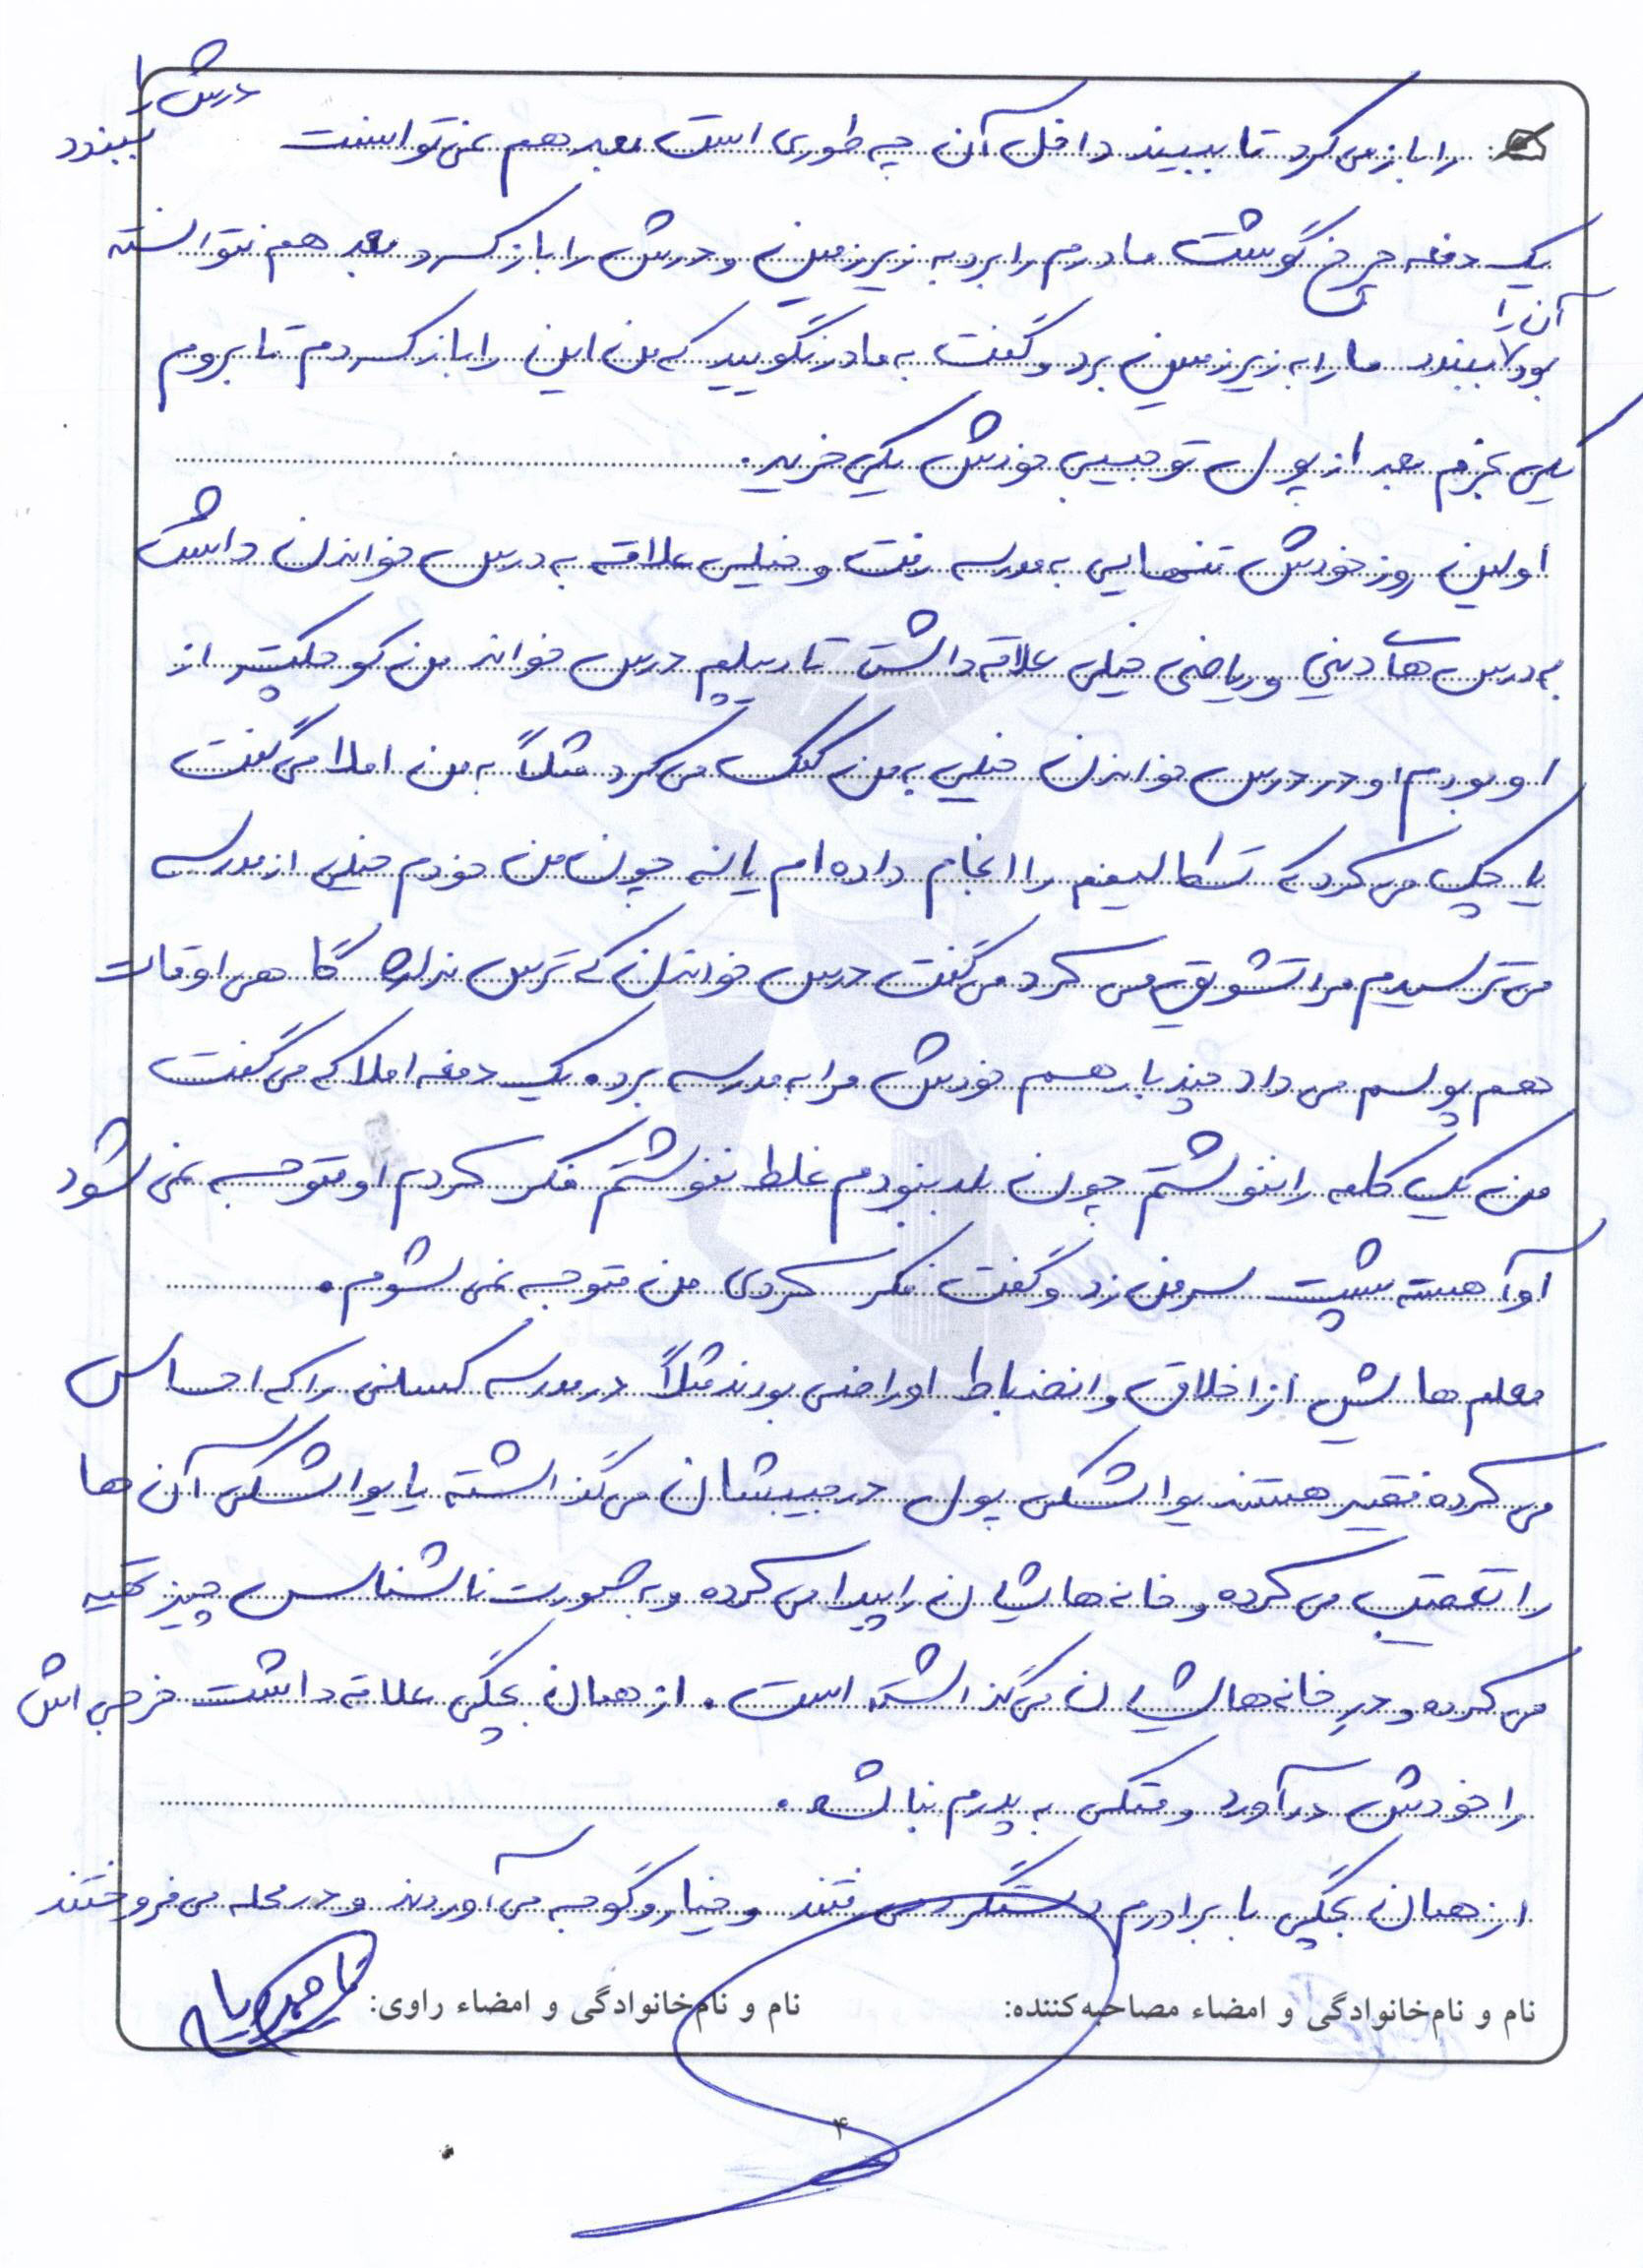 را باز می کرد تا ببیند داخل آن چه طوری است بعد هم نمی توانست درش را ببندد
یک دفعه چرخ گوشت مادرم را برد به زیرزمین و درش را باز کرد بعد هم نتوانسته
بود آن را ببندد ما را به زیرزمین برد و گفت به مادر نگویید که من این را باز کردم تا بروم
یکی بخرم بعد از پول تو جیبی خودش یکی خرید.
اولین روز خودش تنهایی به مدرسه رفت و خیلی علاقه به درس خواندن داشت
به درس های دینی و ریاضی خیلی علاقه داشت تا دیپلم درس خواند من کوچکتر از
او بودم او در درس خواندن خیلی به من کمک می کرد مثلاً به من املا می گفت
یا چک می کرد که تکالیفم را انجام داده ام یا نه چون من خودم خیلی از مدرسه
می ترسیدم مرا تشویق می کرد می گفت درس خواندن که ترس نداره گاهی اوقات
هم پولم می داد چند بار هم خودش مرا به مدرسه برد. یک دفعه املا که می گفت
من یک کلمه را ننوشتم چون بلد نبودم غلط ننوشتم فکر کردم او متوجه نمی شود
او آهسته پشت سر من زد و گفت فکر کردی من متوجه نمی شوم.
معلم هایش از اخلاق و انضباط او راضی بودند مثلاً در مدرسه کسانی را که احساس
می کرده فقیر هستند یواشکی پول در جیبشان می گذاشته یا یواشکی آن ها
را تعقیب می کرده و خانه هایشان را پیدا می کرده و به صورت ناشناس چیز تهیه
می کرده و در خانه هایشان می گذاشته است. از همان بچگی علاقه داشت خرجی اش
را خودش درآورد و متکی به پدرم نباشد.
از همان بچگی با برادرم و خیار و گوجه می آوردند و در محله می فروختند
نام و نام‌خانوادگی و امضاء مصاحبه‌کننده: نام و نام‌خانوادگی و امضاء راوی:
۴